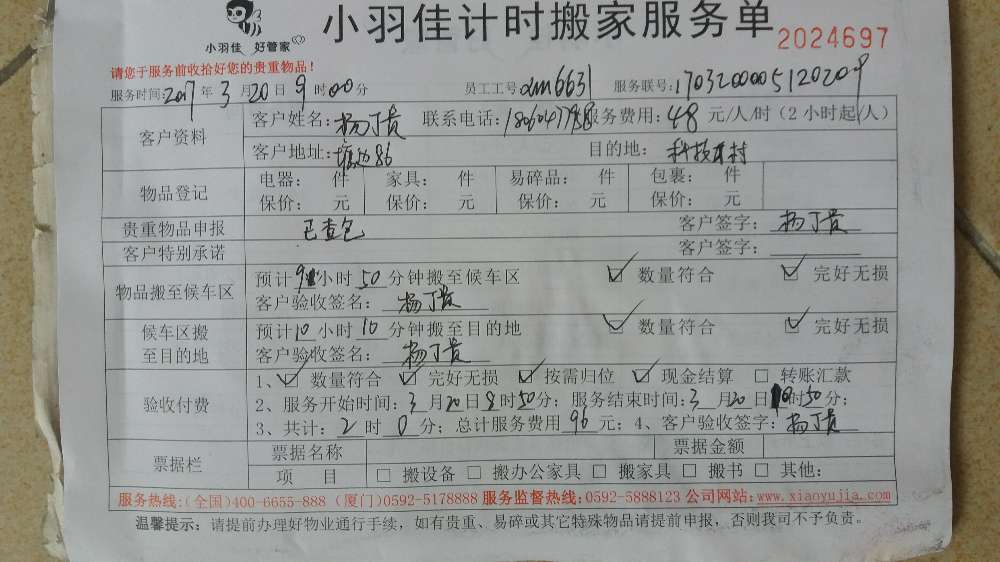 小羽佳 好管家
小羽佳计时搬家服务单
2024697
请您于服务前收拾好您的贵重物品！
服务时间:2017年3月20日9时00分 员工工号:dm6631 服务联号:1703200005120209
客户资料
客户姓名:杨丁贵 联系电话: 服务费用:48元/人/时(2小时起/人)
客户地址: 86 目的地:
物品登记
电器: 件 家具: 件 易碎品: 件 包裹: 件
保价: 元 保价: 元 保价: 元 保价: 元
贵重物品申报 已查包 客户签字:杨丁贵
客户特别承诺 客户签字:
物品搬至候车区
预计9小时50分钟搬至候车区 ☑ 数量符合 ☑ 完好无损
客户验收签名:杨丁贵
候车区搬至目的地
预计10小时10分钟搬至目的地 ☑ 数量符合 ☑ 完好无损
客户验收签名:杨丁贵
验收付费
1、☑ 数量符合 ☑ 完好无损 ☑ 按需归位 ☑ 现金结算 □ 转账汇款
2、服务开始时间:3月20日8时50分; 服务结束时间:3月20日10时50分;
3、共计:2时0分; 总计服务费用96元; 4、客户验收签字:杨丁贵
票据栏
票据名称 票据金额
项 目 □ 搬设备 □ 搬办公家具 □ 搬家具 □ 搬书 □ 其他:
服务热线:(全国)400-6655-888 (厦门)0592-5178888 服务监督热线:0592-5888123 公司网站:www.xiaoyujia.com
温馨提示: 请提前办理好物业通行手续，如有贵重、易碎或其它特殊物品请提前申报，否则我司不予负责。